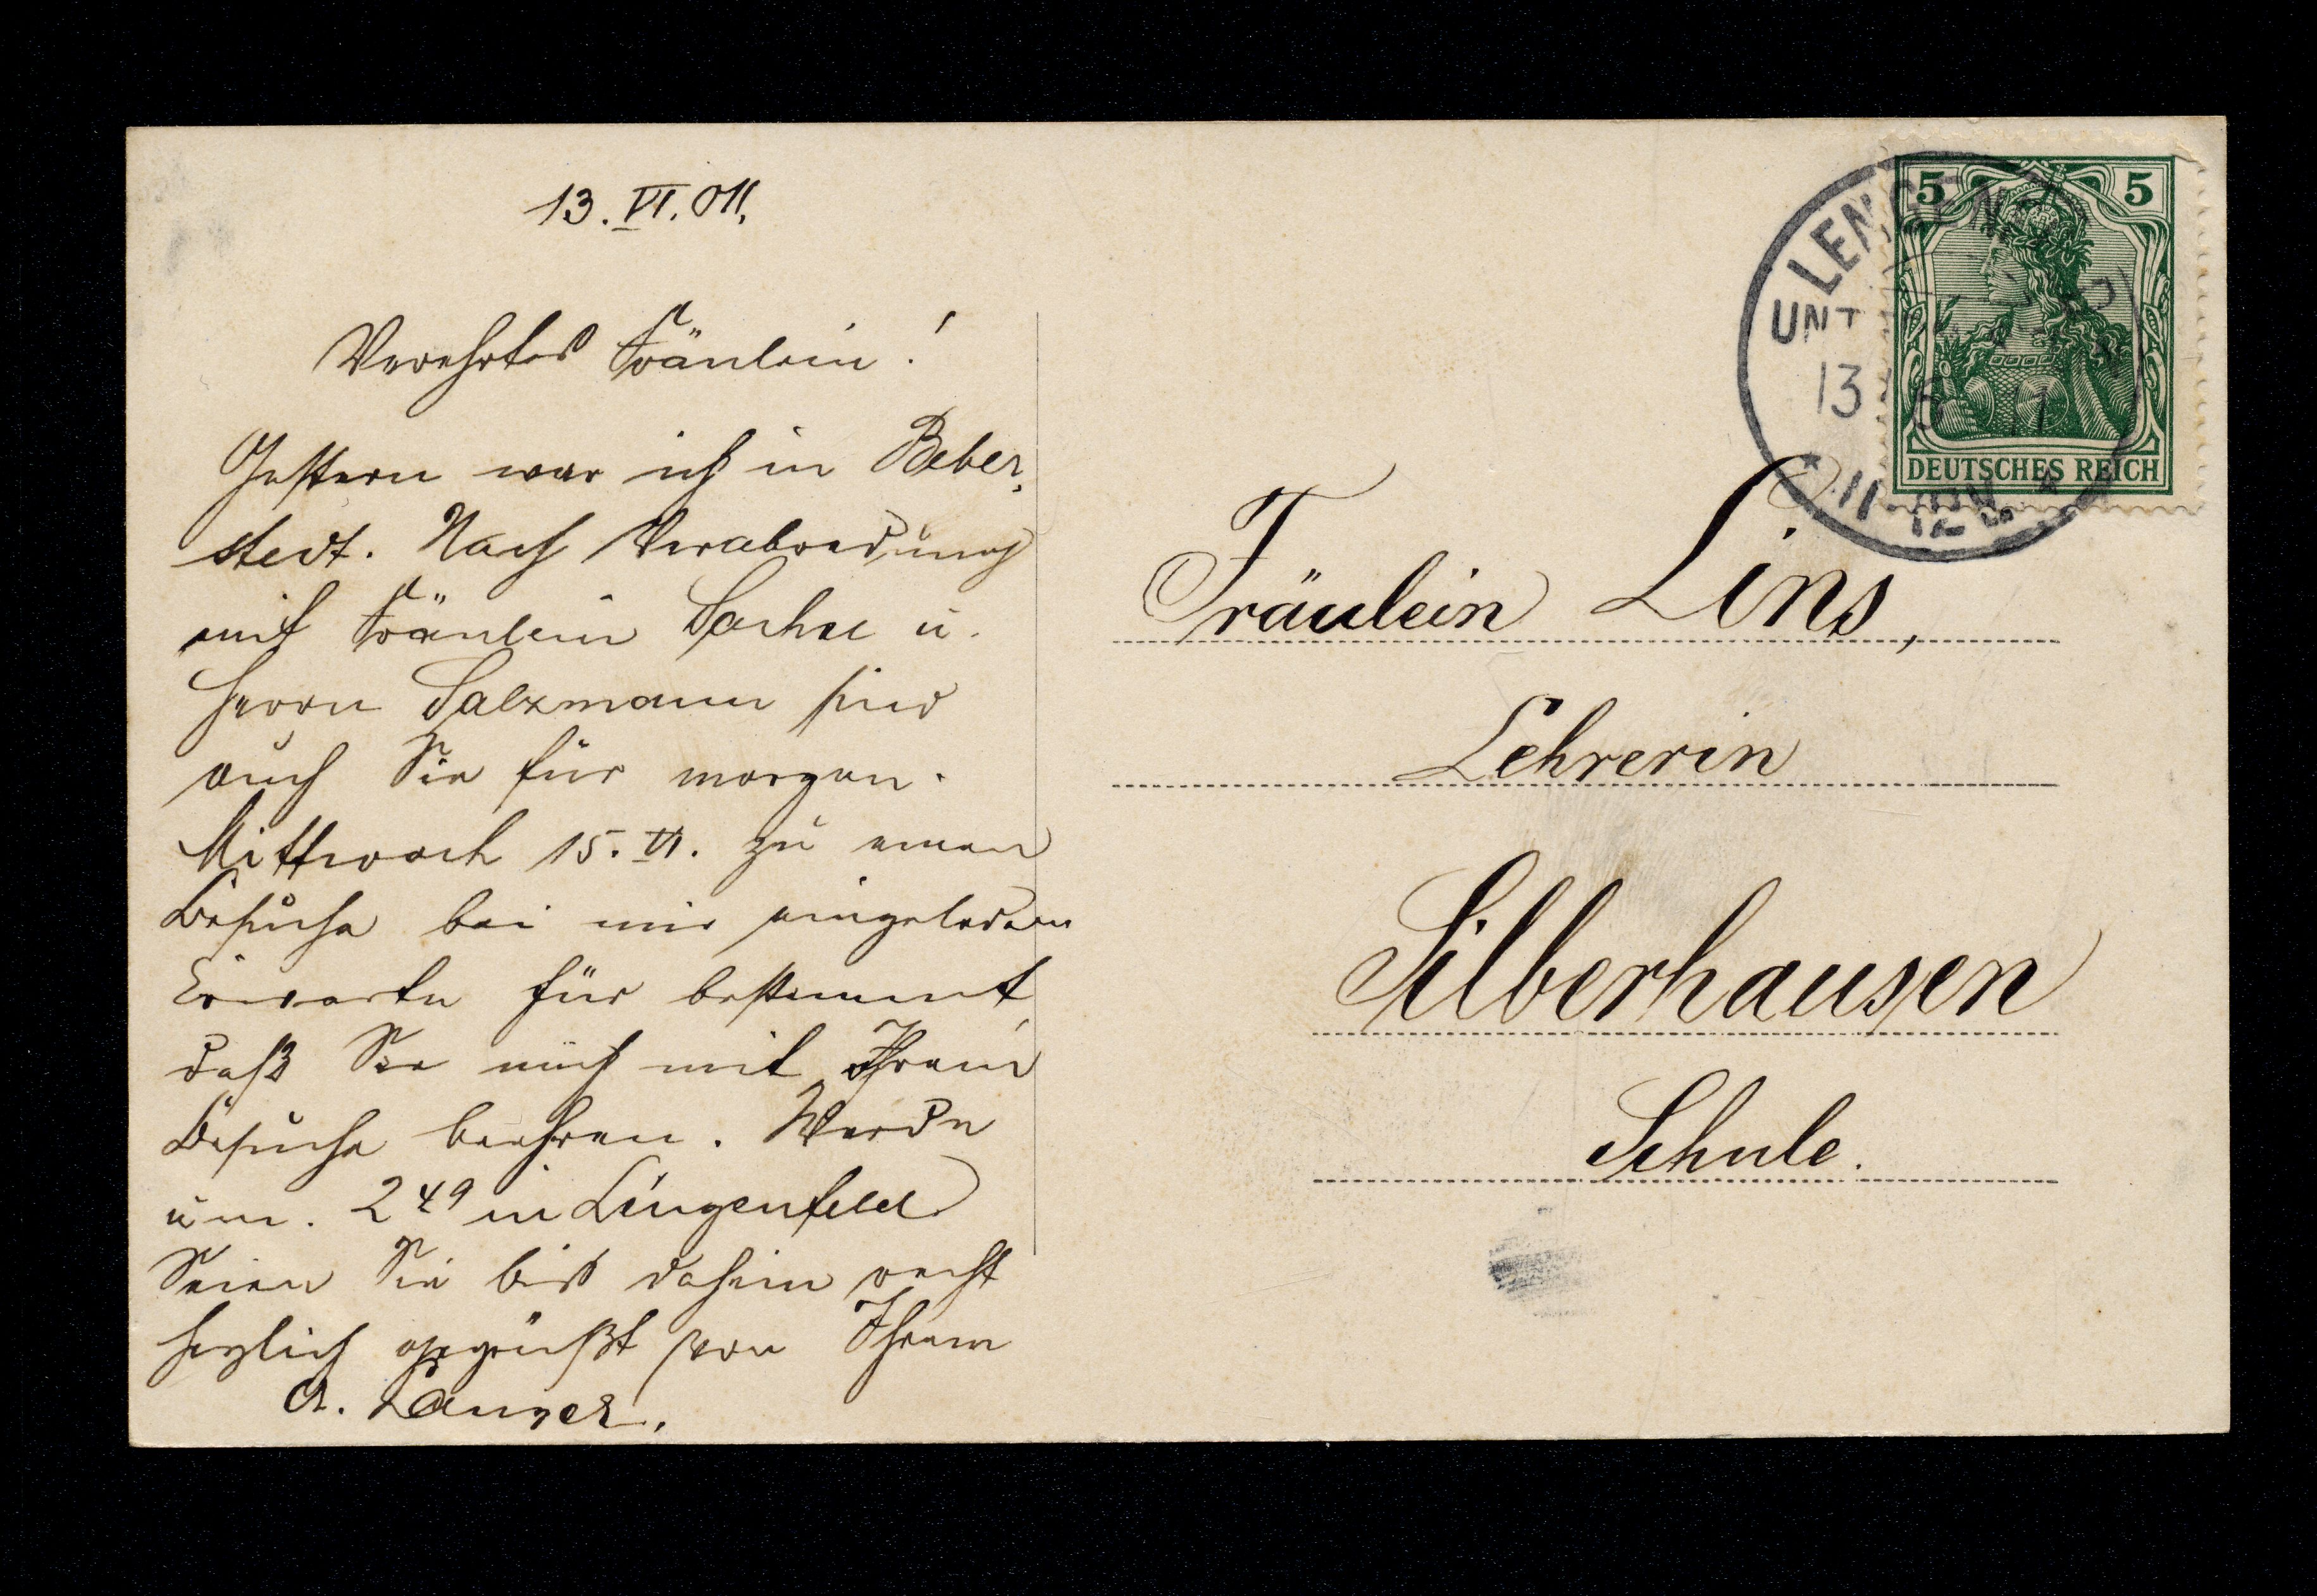 13. VI. 011.
Verehrtes Fräulein!
Gestern war ich in Beber,
stedt. Nach Verabredung
mit Fräulein Sachse u.
Herrn Salzmann sind
auch Sie für morgen.
Mittwoch 15. VI. zu einem
Besuche bei mir eingeladen
Erwarte für bestimmt,
daß Sie mich mit Ihrem
Besuche beehren. Werde
um. 2 49 in Lengenfeld
Seien Sie bis dahin recht
herzlich gegrüßt von Ihrem
A.
5 5
DEUTSCHES REICH
LENGENF
UNT
13 6 11
Fräulein Lins,
Lehrerin
Silberhausen
Schule.